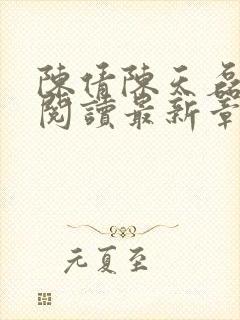 陳倩陳天磊
閱讀最新章
元夏至